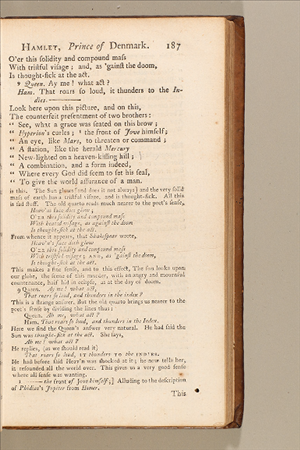 HAMLET, Prince of Denmark. 187
O'er this solidity and compound mass
With tristful visage; and, as 'gainst the doom,
Is thought-sick at the act.
Queen. Ay me! what act?
Ham. That roars so loud, it thunders to the In-
dies.
Look here upon this picture, and on this,
The counterfeit presentment of two brothers:
“ See, what a grace was seated on this brow;
“ Hyperion's curles; the front of Jove himself;
“ An eye, like Mars, to threaten or command;
“ A station, like the herald Mercury
“ New-lighted on a heaven-kissing hill;
“ A combination, and a form indeed,
“ Where every God did seem to set his seal,
“ To give the world assurance of a man.
is this. The Sun glows (and does it not always) and the very solid
mass of earth has a tristful visage, and is thought-sick. All this
is sad stuff. The old quarto reads much nearer to the poet's sense,
Heav'n's face does glow;
O'ER this solidity and compound mass
With heated visage, as against the doom
Is thought-sick at the act.
From whence it appears, that Shakespeare wrote,
Heav'n's face doth glow
O'ER this solidity and compound mass
With tristful visage; AND, as 'gainst the doom,
Is thought-sick at the act.
This makes a fine sense, and to this effect, The sun looks upon
our globe, the scene of this murder, with an angry and mournful
countenance, half hid in eclipse, as at the day of doom.
Queen. Ay me! what act,
That roars so loud, and thunders in the index?
This is a strange answer. But the old quarto brings us nearer to the
poet's sense by dividing the lines thus;
Queen. Ah me, what act?
Ham. That roars so loud, and thunders in the Index.
Here we find the Queen's answer very natural. He had said the
Sun was thought-sick at the act. She says,
Ah me! what act?
He replies, (as we should read it)
That roars so loud, IT thunders TO THE INDIES.
He had before said Heav'n was shocked at it; he now tells her,
it resounded all the world over. This gives us a very good sense
where all sense was wanting.
—— the front of Jove himself;] Alluding to the description
of Phidias's Jupiter from Homer.
This